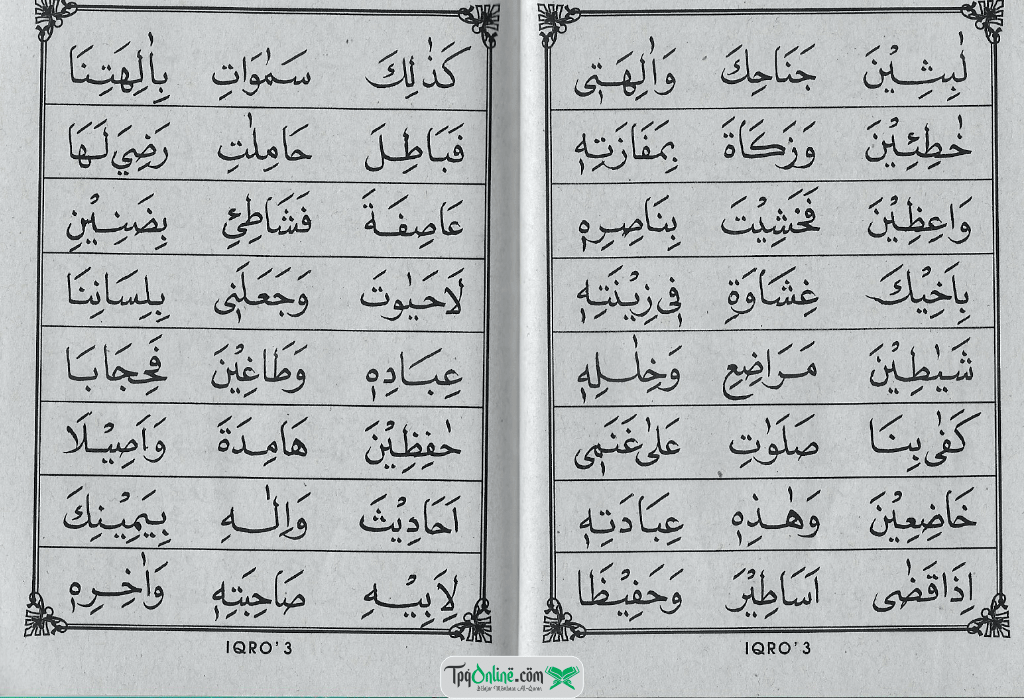 لٰبِثِيْنَ جَنَاحِكَ وَاٰلِهَتِى
خٰطِئِيْنَ وَزَكَاةَ بِمَفَازَتِهٖ
وَاعِظِيْنَ فَخَشِيْتَ بِنَاصِرِهٖ
بِاَخِيْكَ غِشَاوَةِ فِى زِيْنَتِهٖ
شَيٰطِيْنَ مَرَاضِعِ وَخِلٰلِهٖ
كَفٰى بِنَا صَلَوٰتِ عَلٰى غَنَمِى
خَاضِعِيْنَ وَهٰذِهٖ عِبَادَتِهٖ
اِذَا قَضٰى اَسَاطِيْرَ وَحَفِيْظًا
IQRO'3
كَذٰلِكَ سَمٰوَاتِ بِاٰلِهَتِنَا
فَبَاطِلَ حَامِلٰتِ رَضِيَ لَهَا
عَاصِفَةَ فَشَاطِئِ بِضَنِيْنِ
لَاحَيٰوتَ وَجَعَلَنِى بِلِسَانِنَا
عِبَادِهٖ وَطَاغِيْنَ فَحِجَابَا
حٰفِظِيْنَ هَامِدَةَ وَاَصِيْلَا
اَحَادِيْثَ وَاِلٰهِ بِيَمِيْنِكَ
لِاَبِيْهِ صَاحِبَتِهٖ وَاٰخِرِهٖ
IQRO'3
TpqOnline.com